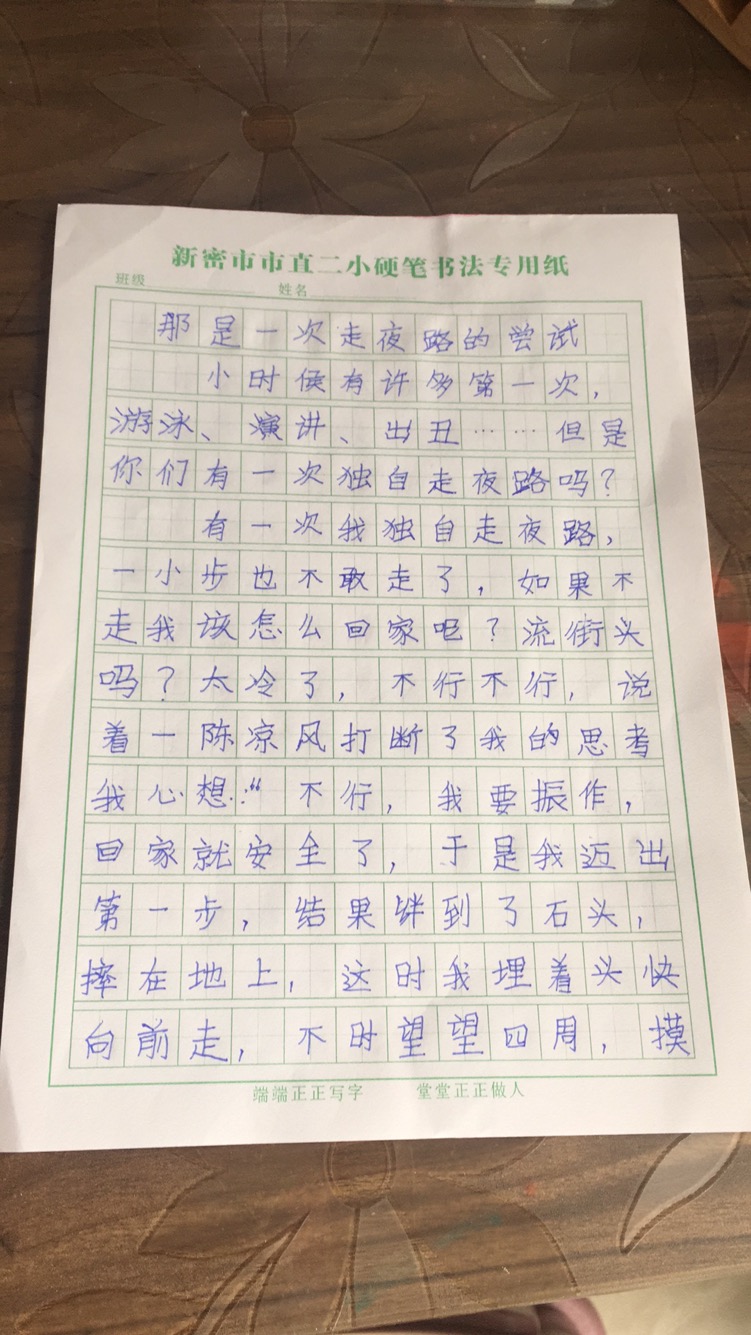 新密市市直二小硬笔书法专用纸
班级 姓名
那是一次走夜路的尝试
小时候有许多第一次，
游泳、演讲、出丑……但是
你们有一次独自走夜路吗？
有一次我独自走夜路，
一小步也不敢走了，如果不
走我该怎么回家呢？流街头
吗？太冷了，不行不行，说
着一陈凉风打断了我的思考
我心想：“不行，我要振作，
回家就安全了，于是我迈出
第一步，结果绊到了石头，
摔在地上，这时我埋着头快
向前走，不时望望四周，摸
端端正正写字 堂堂正正做人